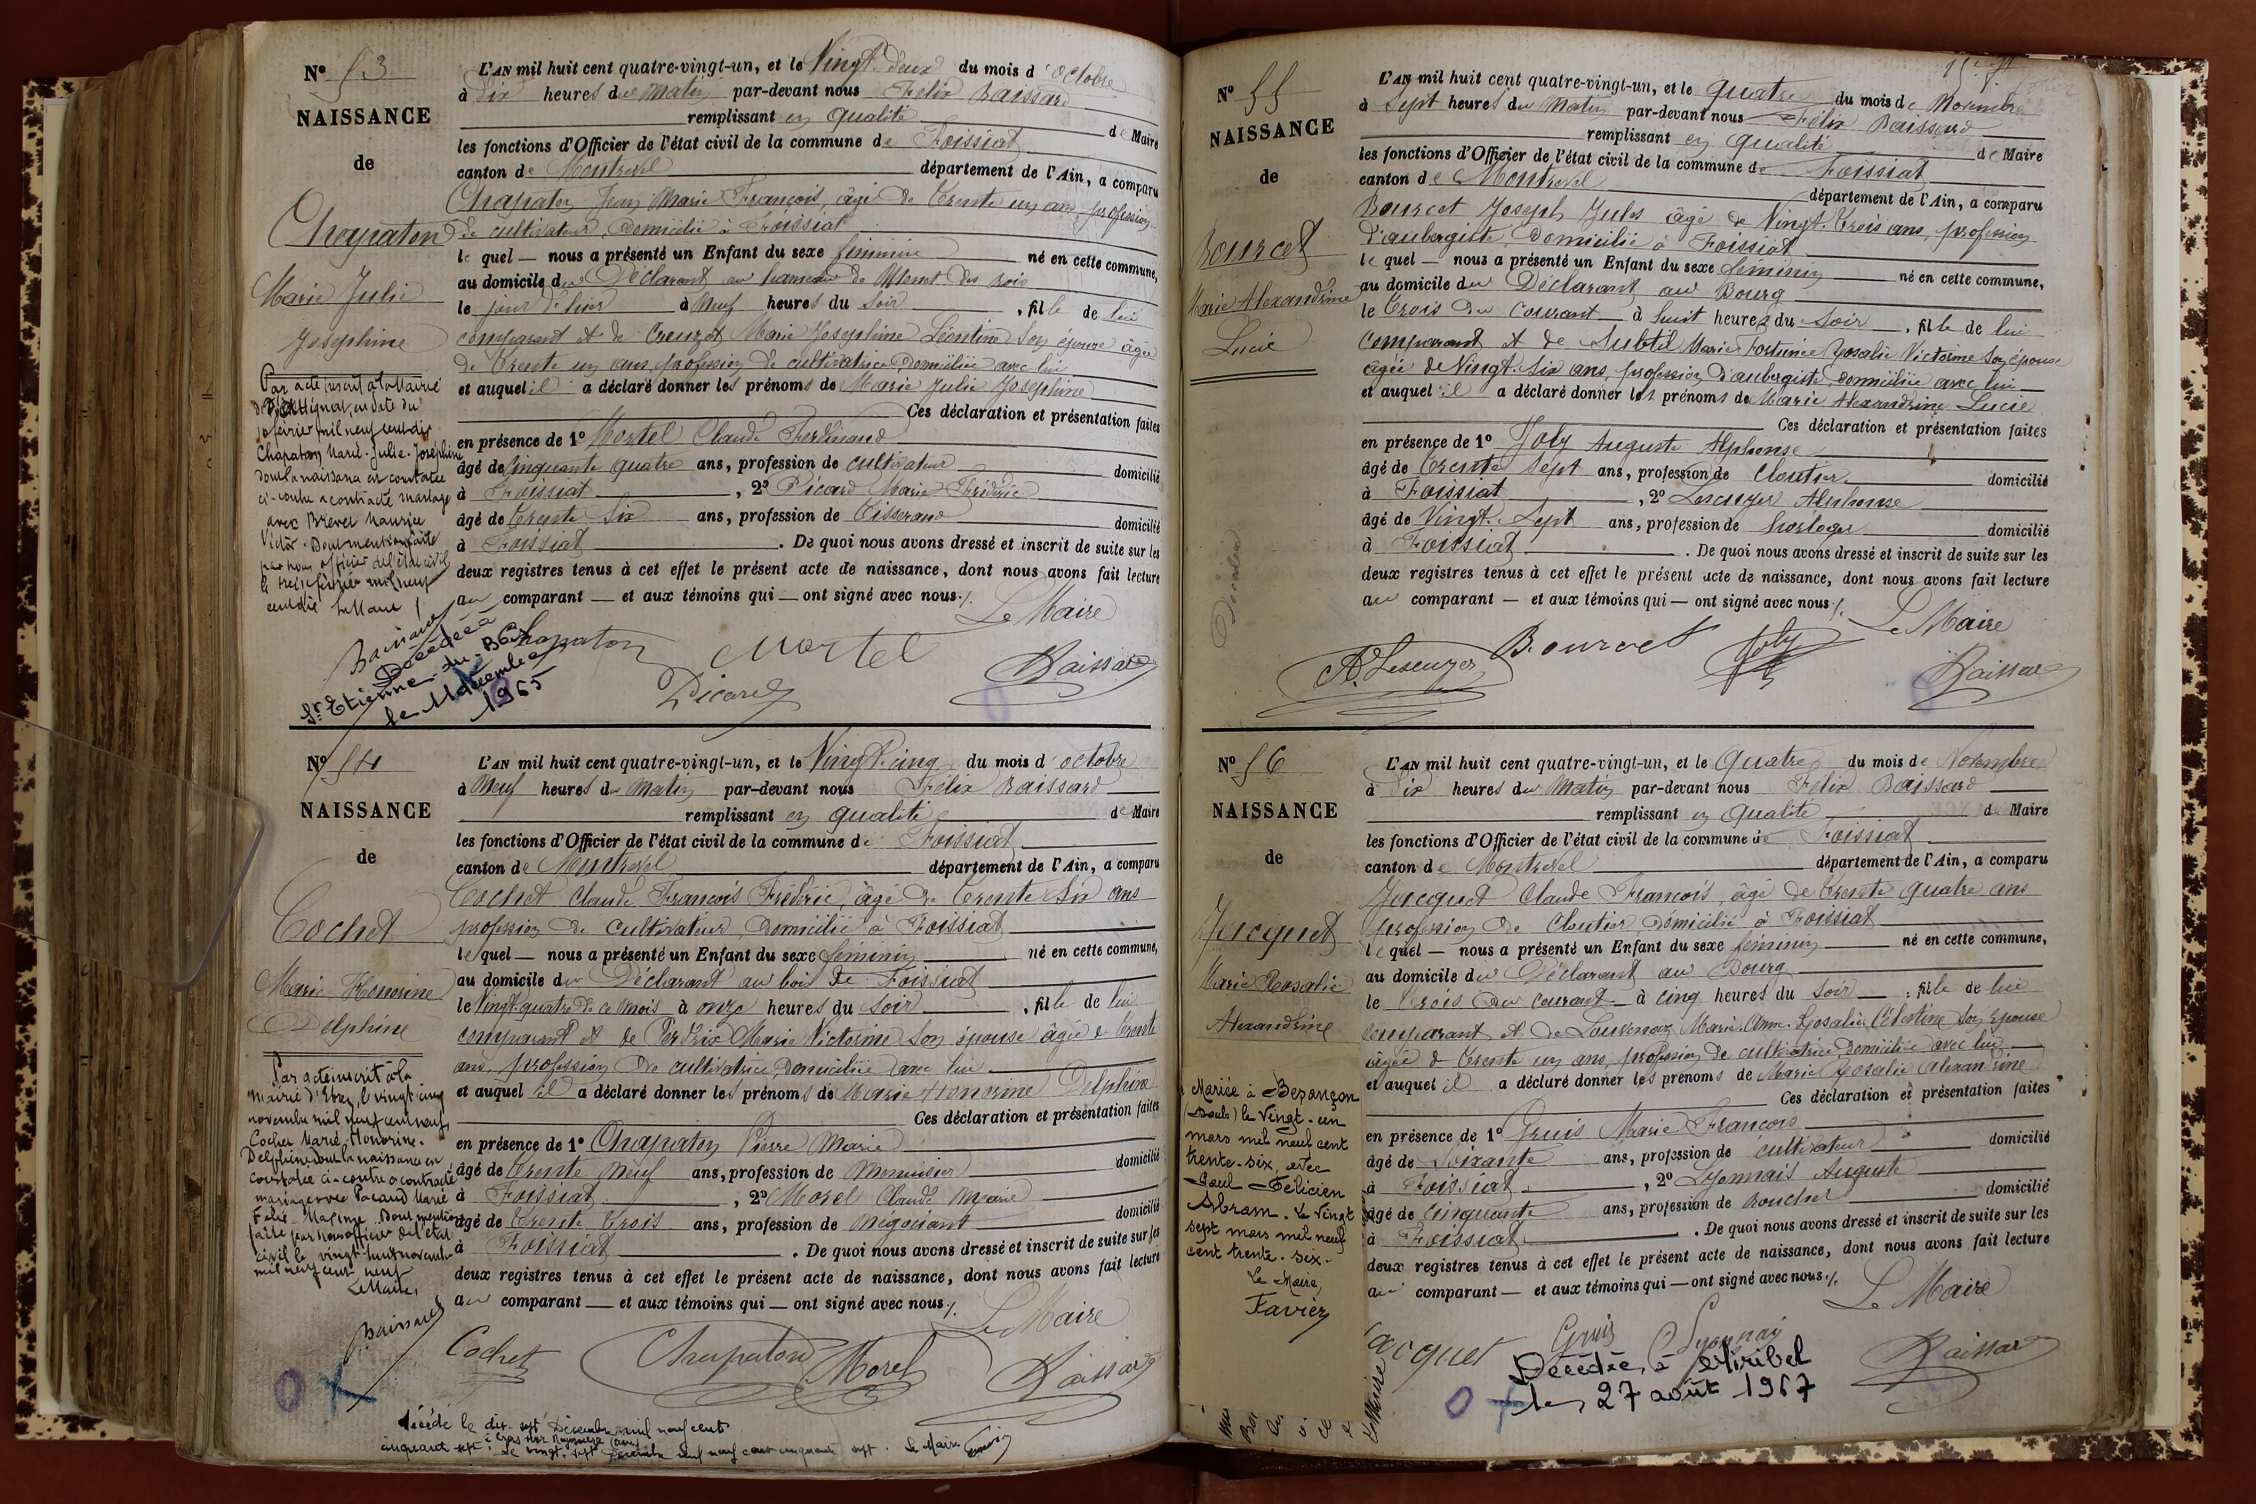 N° 53
NAISSANCE
de
Chapaton
Marie Julie
Josephine
Par acte inscrit à la Mairie
en date du
février mil neuf cent dix
Chapaton Marie-Julie-Joséphine
dont la naissance est constatée
ci-contre a contracté mariage
avec Brevet Maurice
Victor. Dont mention faite
par nous officier de l'état civil
le treize février mil neuf
cent dix Le Maire
Baissard
Décédée à
St Etienne-du-Bois
le 11 décembre
1965
L'AN mil huit cent quatre-vingt-un, et le Vingt-deux du mois d'octobre
à Dix heures du Matin par-devant nous Félix Baissard
remplissant en qualité de Maire
les fonctions d'Officier de l'état civil de la commune de Foissiat
canton de Montrevel département de l'Ain, a comparu
Chapaton Jean Marie François, âgé de Trente un ans, profession
de cultivateur, Domicilié à Foissiat
le quel — nous a présenté un Enfant du sexe féminin né en cette commune,
au domicile du Déclarant au hameau de des bois
le jour d'hier à Neuf heures du Soir, fille de lui
comparant et de Creuzot Marie Josephine Léontine Son épouse âgée
de Trente un ans, profession de cultivatrice, Domiciliée avec lui
et auquel il a déclaré donner les prénoms de Marie Julie Josephine
Ces déclaration et présentation faites
en présence de 1° Mortel Claude Ferdinand
âgé de Cinquante quatre ans, profession de cultivateur domicilié
à Foissiat, 2° Picard Marie Frédéric
âgé de Trente Six ans, profession de Tisserand domicilié
à Foissiat. De quoi nous avons dressé et inscrit de suite sur les
deux registres tenus à cet effet le présent acte de naissance, dont nous avons fait lecture
au comparant — et aux témoins qui — ont signé avec nous ./.
Le Maire
Chapaton Mortel
Picard Baissard
N° 54
NAISSANCE
de
Cochet
Marie Honorine
Delphine
Par acte inscrit à la
Mairie d'Etrez, le vingt cinq
novembre mil neuf cent neuf
Cochet Marie-Honorine-
Delphine dont la naissance est
constatée ci-contre a contracté
mariage avec Pacaud Marie
Félix Maxime. Dont mention
faite par nous officier de l'état
civil le vingt huit novembre
mil neuf cent neuf
Le Maire,
Baissard
L'AN mil huit cent quatre-vingt-un, et le Vingt-cinq du mois d'octobre
à Neuf heures du Matin par-devant nous Félix Baissard
remplissant en qualité de Maire
les fonctions d'Officier de l'état civil de la commune de Foissiat
canton de Montrevel département de l'Ain, a comparu
Cochet Claude François Frédéric, âgé de Trente Six ans
profession de cultivateur, Domicilié à Foissiat
le quel — nous a présenté un Enfant du sexe féminin né en cette commune,
au domicile du Déclarant au bois de Foissiat
le Vingt-quatre de ce mois à onze heures du Soir, fille de lui
comparant et de Perdrix Marie Victorine Son épouse âgée de Trente
ans, profession de cultivatrice Domiciliée avec lui
et auquel il a déclaré donner les prénoms de Marie Honorine Delphine
Ces déclaration et présentation faites
en présence de 1° Chapaton Pierre Marie
âgé de Trente Neuf ans, profession de Menuisier domicilié
à Foissiat, 2° Morel Claude Marie
âgé de Trente Trois ans, profession de Négociant domicilié
à Foissiat. De quoi nous avons dressé et inscrit de suite sur les
deux registres tenus à cet effet le présent acte de naissance, dont nous avons fait lecture
au comparant — et aux témoins qui — ont signé avec nous ./.
Le Maire
Cochet Chapaton Morel Baissard
Décédé le dix-sept Décembre mil neuf cent
cinquante-sept à Cras sur Reyssouze (Ain)
Le vingt-sept Décembre mil neuf cent cinquante sept. Le Maire
N° 55
NAISSANCE
de
Bourcet
Marie Alexandrine
Lucie
Décédée
L'AN mil huit cent quatre-vingt-un, et le Quatre du mois de Novembre
à Sept heures du Matin par-devant nous Félix Baissard
remplissant en qualité de Maire
les fonctions d'Officier de l'état civil de la commune de Foissiat
canton de Montrevel département de l'Ain, a comparu
Bourcet Joseph Jules âgé de Vingt-Trois ans, profession
d'aubergiste, Domicilié à Foissiat
le quel — nous a présenté un Enfant du sexe féminin né en cette commune,
au domicile du Déclarant au Bourg
le Trois du courant à huit heures du Soir, fille de lui
comparant et de Subtil Marie Fortunée Rosalie Victorine Son épouse
âgée de Vingt-Six ans, profession d'aubergiste, domiciliée avec lui
et auquel il a déclaré donner les prénoms de Marie Alexandrine Lucie
Ces déclaration et présentation faites
en présence de 1° Joly Auguste Alphonse
âgé de Trente Sept ans, profession de Cloutier domicilié
à Foissiat, 2° Lescuyer Alphonse
âgé de Vingt-Sept ans, profession de horloger domicilié
à Foissiat. De quoi nous avons dressé et inscrit de suite sur les
deux registres tenus à cet effet le présent acte de naissance, dont nous avons fait lecture
au comparant — et aux témoins qui — ont signé avec nous ./.
Le Maire
A. Lescuyer Bourcet Joly Baissard
N° 56
NAISSANCE
de
Jacquet
Marie Rosalie
Alexandrine
Mariée à Besançon
(Doubs) le Vingt-un
mars mil neuf cent
trente-six, avec
Paul Félicien
Abram. Le Vingt
sept mars mil neuf
cent trente-six.
Le Maire,
Favier
L'AN mil huit cent quatre-vingt-un, et le Quatre du mois de Novembre
à Dix heures du Matin par-devant nous Félix Baissard
remplissant en qualité de Maire
les fonctions d'Officier de l'état civil de la commune de Foissiat
canton de Montrevel département de l'Ain, a comparu
Jacquet Claude François, âgé de Trente quatre ans
profession de Cloutier domicilié à Foissiat
le quel — nous a présenté un Enfant du sexe féminin né en cette commune,
au domicile du Déclarant au Bourg
le Trois du courant à cinq heures du Soir, fille de lui
comparant et de Marie Anne Rosalie Célestine Son Epouse
âgée de Trente un ans, profession de cultivatrice, domiciliée avec lui
et auquel il a déclaré donner les prénoms de Marie Rosalie Alexandrine
Ces déclaration et présentation faites
en présence de 1° Gruis Marie François
âgé de Soixante ans, profession de cultivateur domicilié
à Foissiat, 2° Lyonnais Auguste
âgé de Cinquante ans, profession de Boucher domicilié
à Foissiat. De quoi nous avons dressé et inscrit de suite sur les
deux registres tenus à cet effet le présent acte de naissance, dont nous avons fait lecture
au comparant — et aux témoins qui — ont signé avec nous ./.
Le Maire
Jacquet Gruis Lyonnais Baissard
Décédée à Miribel
le 27 août 1967
Le Maire